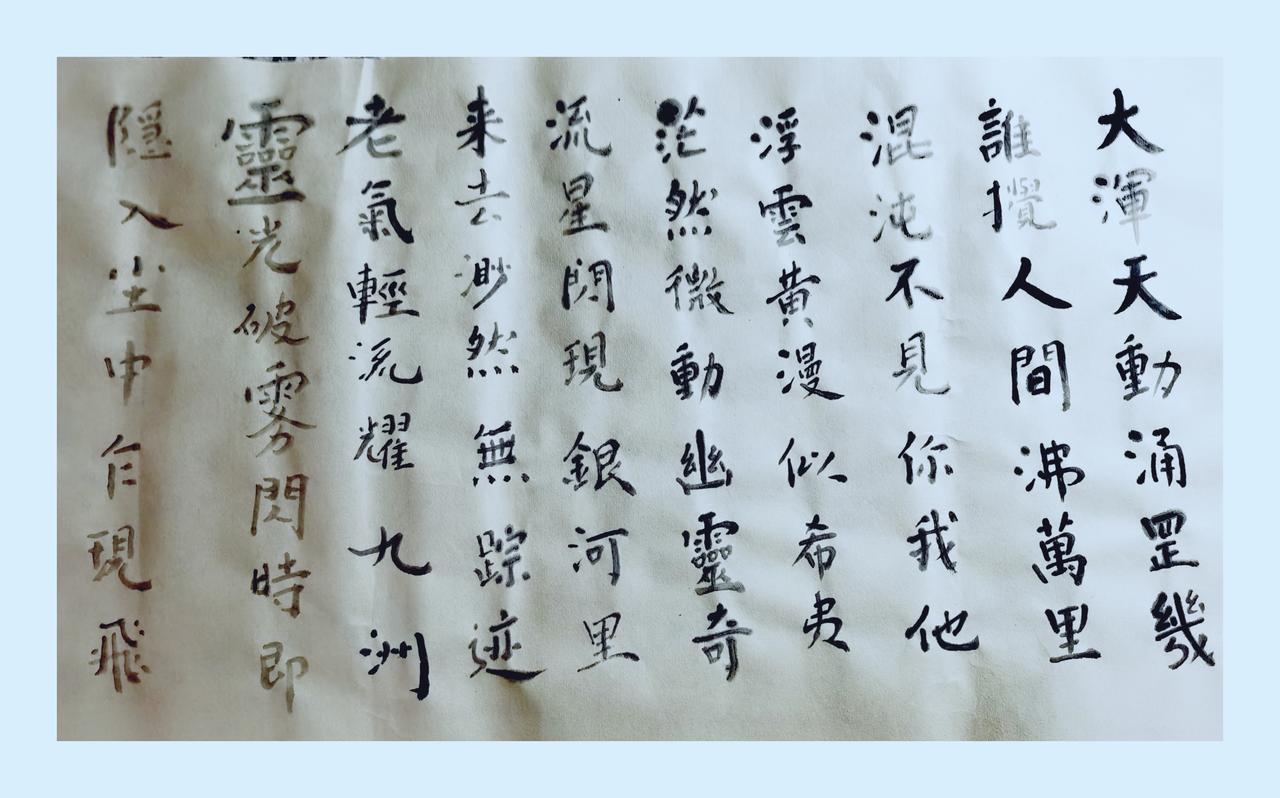 大渾天動涌罡幾
誰攪人間沸萬里
混沌不見你我他
浮雲黃漫似希夷
茫然微動幽靈奇
流星閃現銀河里
来去渺然無踪迹
老氣輕流耀九洲
靈光破雾閃時即
隱入尘中乍現飛